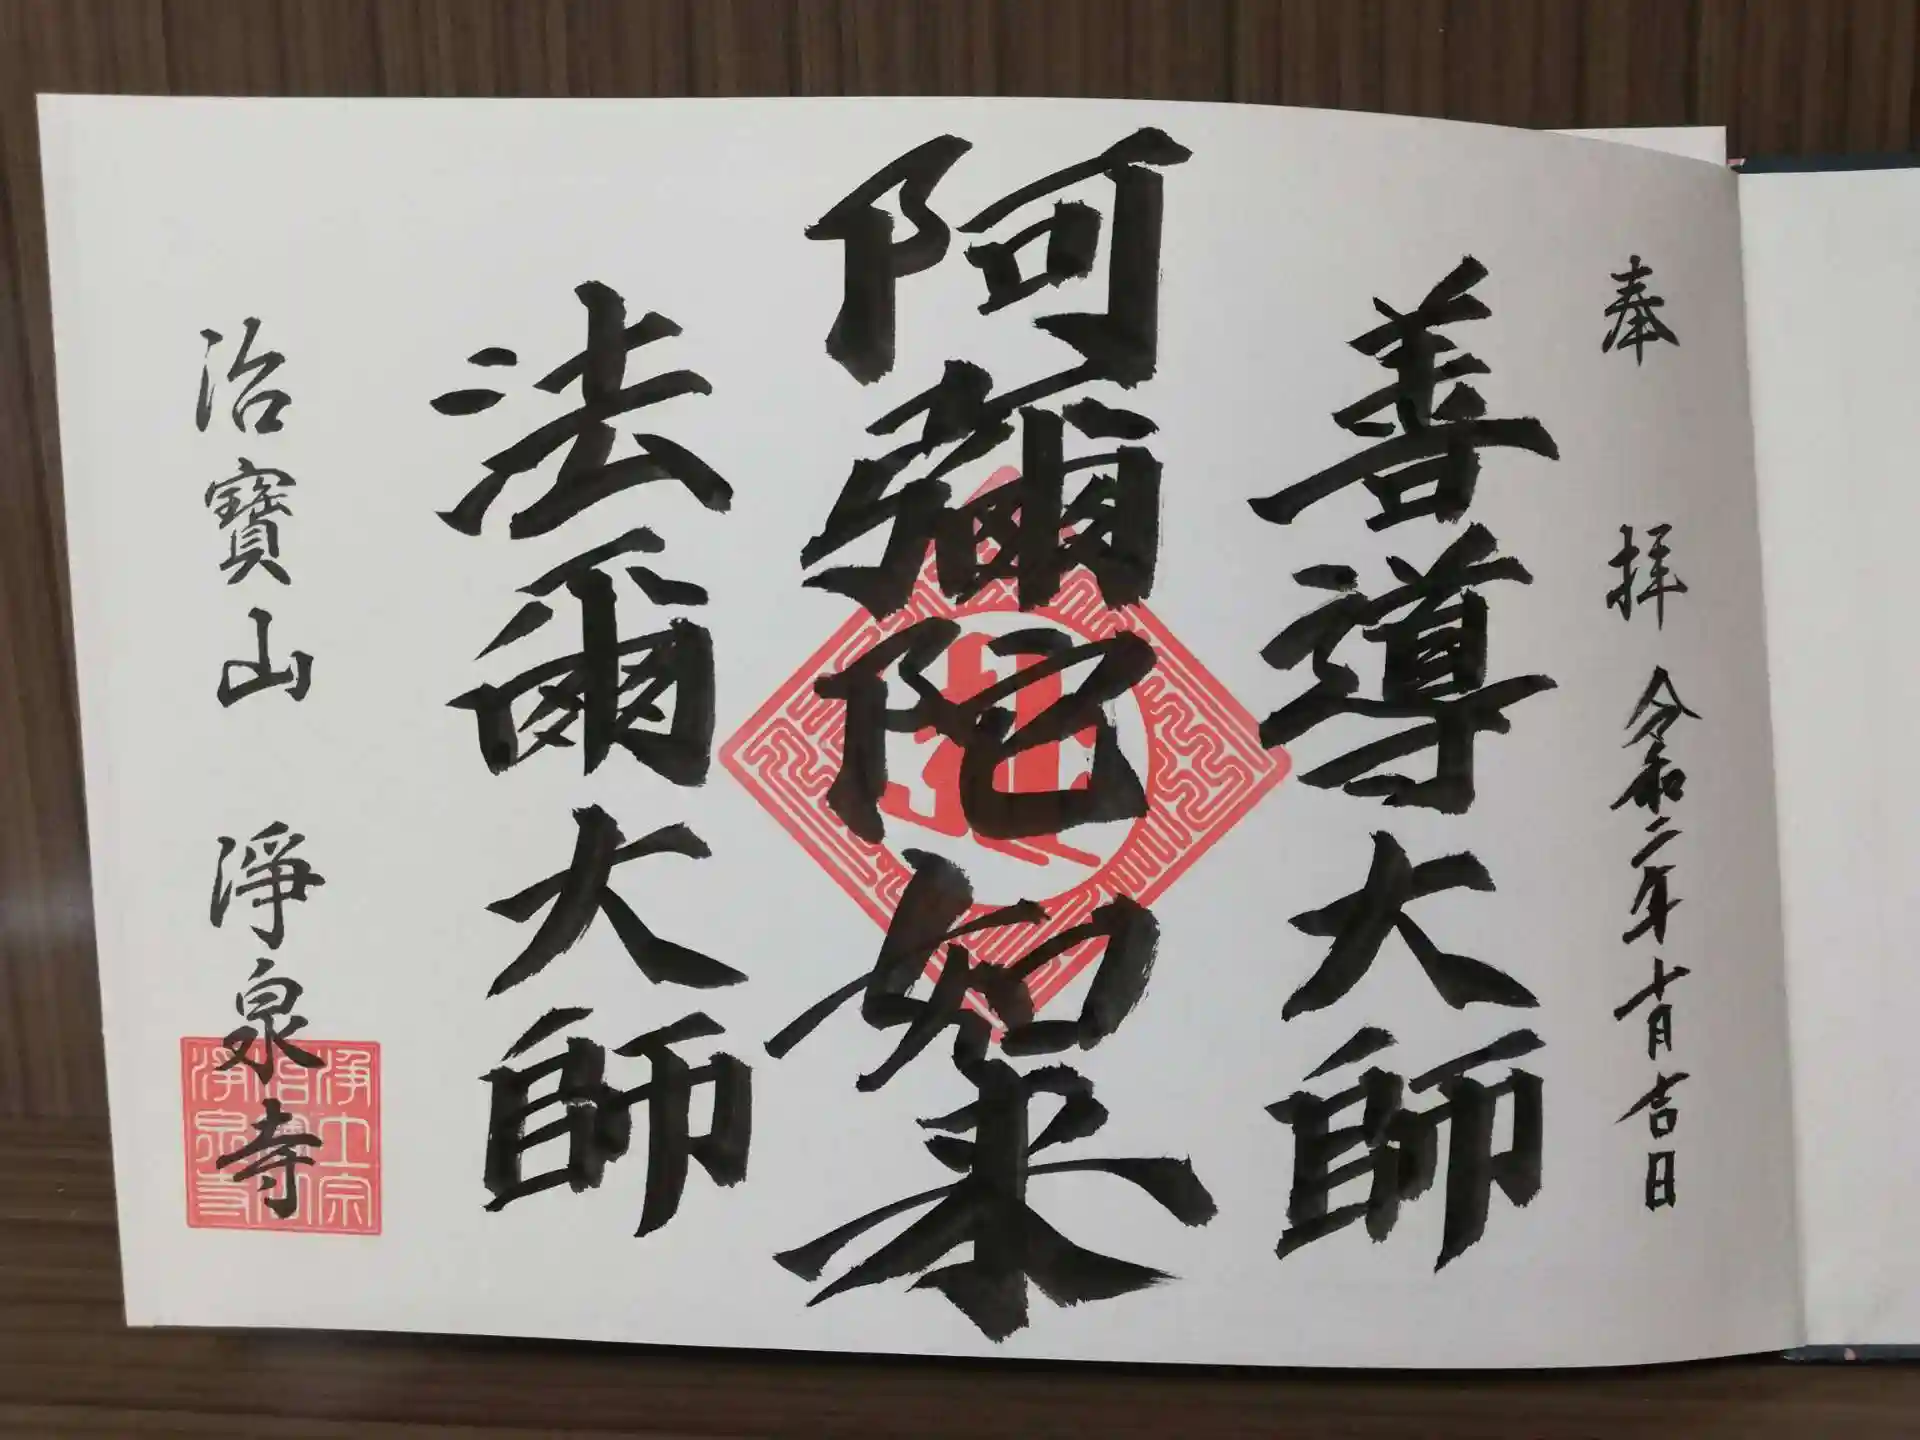 奉拝
令和二年十月吉日
善導大師
阿彌陀如来
法爾大師
治寶山 淨泉寺
浄土宗
治寶山
淨泉寺